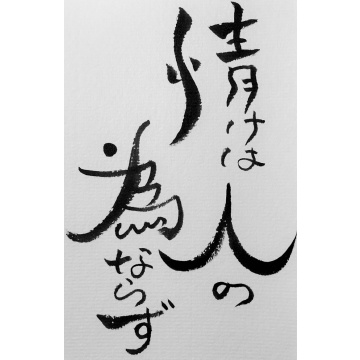 情けは人の
為ならず